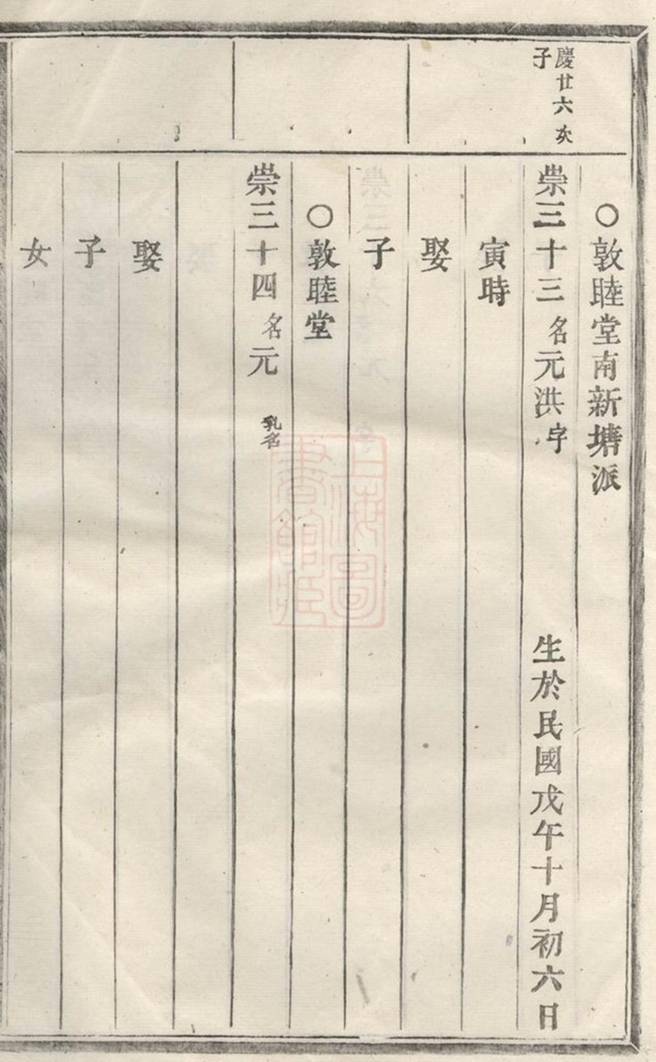 慶廿六次
子
○敦睦堂南新塘派
崇三十三名元洪字 生於民國戊午十月初六日
寅時
娶
子
○敦睦堂
崇三十四名元 乳名
娶
子
女
上海圖
書館藏